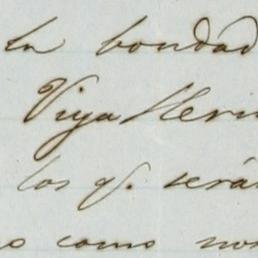 la bondad
Viya Herm
los q. será
o como nos